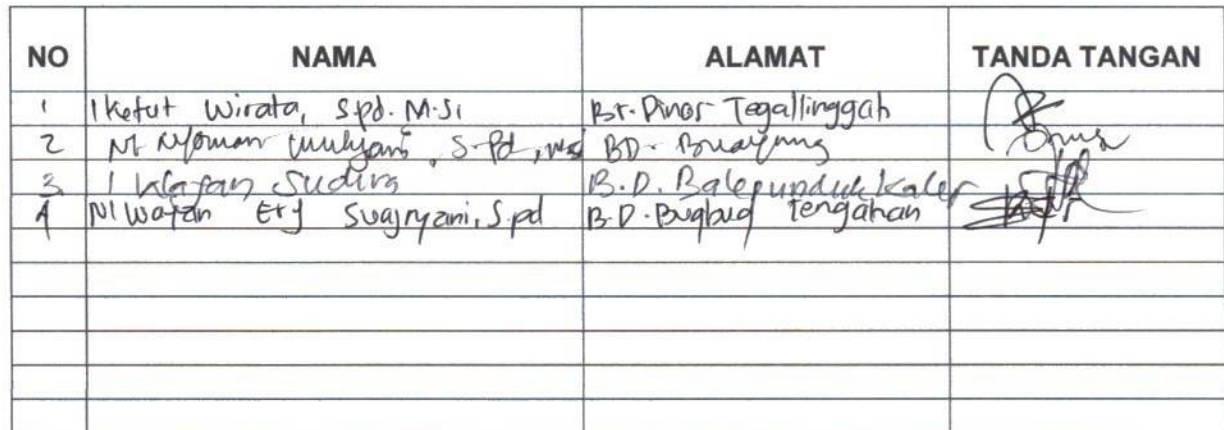 NO NAMA ALAMAT TANDA TANGAN
1 I Ketut Wirata, S.pd. M.Si Br. Dinas Tegallinggah
2 Ni Nyoman , S.Pd, BD.
3 I Wayan Sudira B.D. Balepunduk Kaler
4 Ni Wayan Ery , S.pd B.D. Bugbug Tengahan